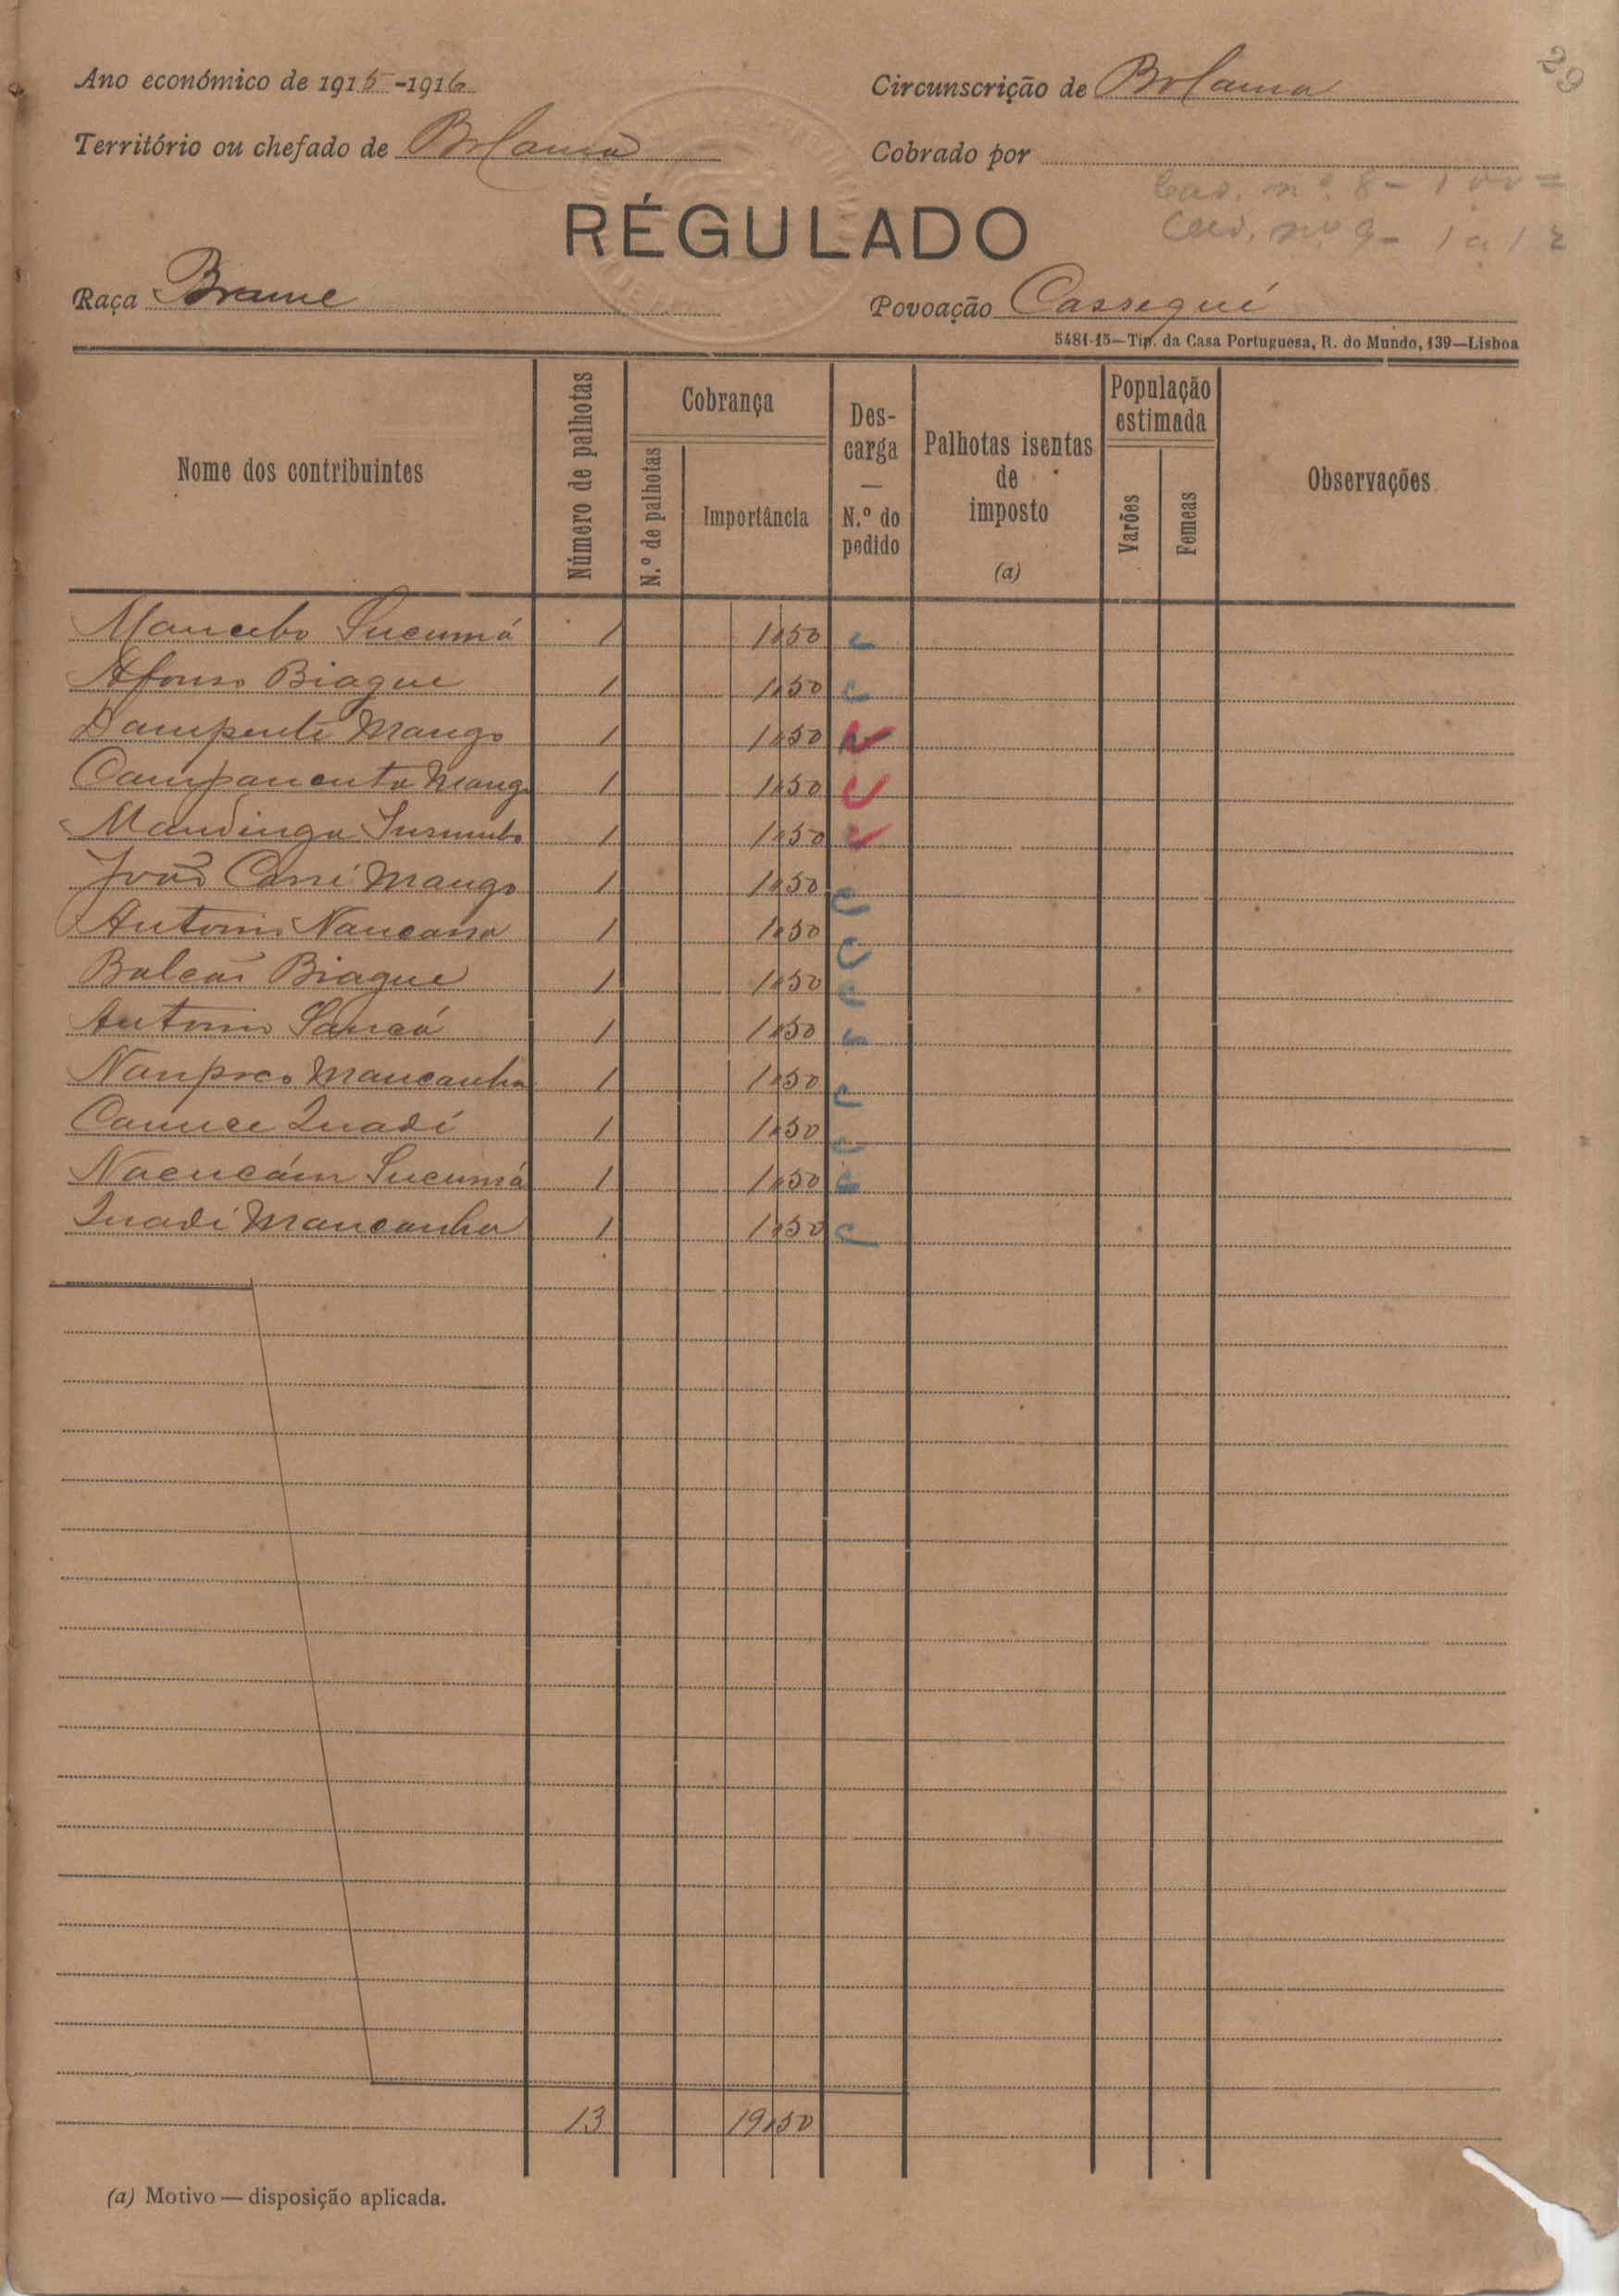 29
Ano económico de 1915-1916 Circunscrição de Bolama
Território ou chefado de Bolama Cobrado por
Cad. nº 8-100=
Cad. nº 9- 1 a 12
RÉGULADO
Raça Brame Povoação Cassequi
5481-15—Tip. da Casa Portuguesa, R. do Mundo, 139—Lisboa
Nome dos contribuintes Número de palhotas Cobrança N.º de palhotas Importância Descarga — N.º do pedido Palhotas isentas de imposto (a) População estimada Varões Femeas Observações
Mancebo Sucumá 1 1$50
Afonso Biague 1 1$50
Dampenté Mango 1 1$50
Campanenta Mango 1 1$50
Mandinga 1 1$50
João Cassi Mango 1 1$50
Antonio Nancassa 1 1$50
Balcão Biague 1 1$50
Antonio Sancá 1 1$50
Nanpreo Mancanha 1 1$50
Quadi 1 1$50
Nacucám Sucumá 1 1$50
Quadi Mancanha 1 1$50
13 19$50
(a) Motivo — disposição aplicada.